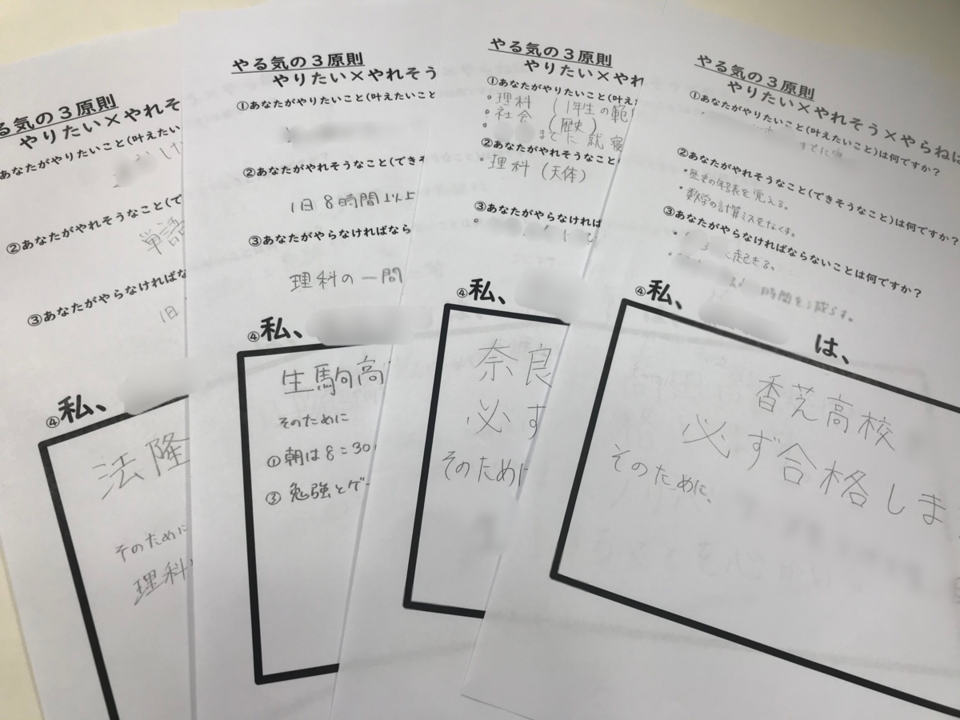 る気の3原則
やりたい×やれそ
あなたがやりたいこと(叶え
②あなたがやれそうなこと(で
単語
③あなたがやらなければな
1日
④私、
法隆
そのために
理科
やる気の3原則
やりたい×やれそう
①あなたがやりたいこと(叶えたいこと
②あなたがやれそうなこと(でき
1日8時間以上
③あなたがやらなければなら
理科の一問
④私、
生駒高
そのために
①朝は8:30
②勉強とゲー
やる気の3原則
やりたい×やれ
①あなたがやりたいこと(叶え
・理科 (1年生の範
・社会 (歴史)
までに就寝
②あなたがやれそうなこと
・理科(天体)
③あなたがやらなければ
④私、
奈良
必ず
そのため
やる気の3原則
やりたい×やれそう×やらねば
①あなたがやりたいこと(叶えたいこと)は何ですか?
までに
②あなたがやれそうなこと(できそうなこと)は何ですか?
・歴史の年表を覚える。
・数学の計算ミスをなくす。
③あなたがやらなければならないことは何ですか?
に起きる。
時間を減らす。
④私、
は、
香芝高校
必ず合格しま
そのために、